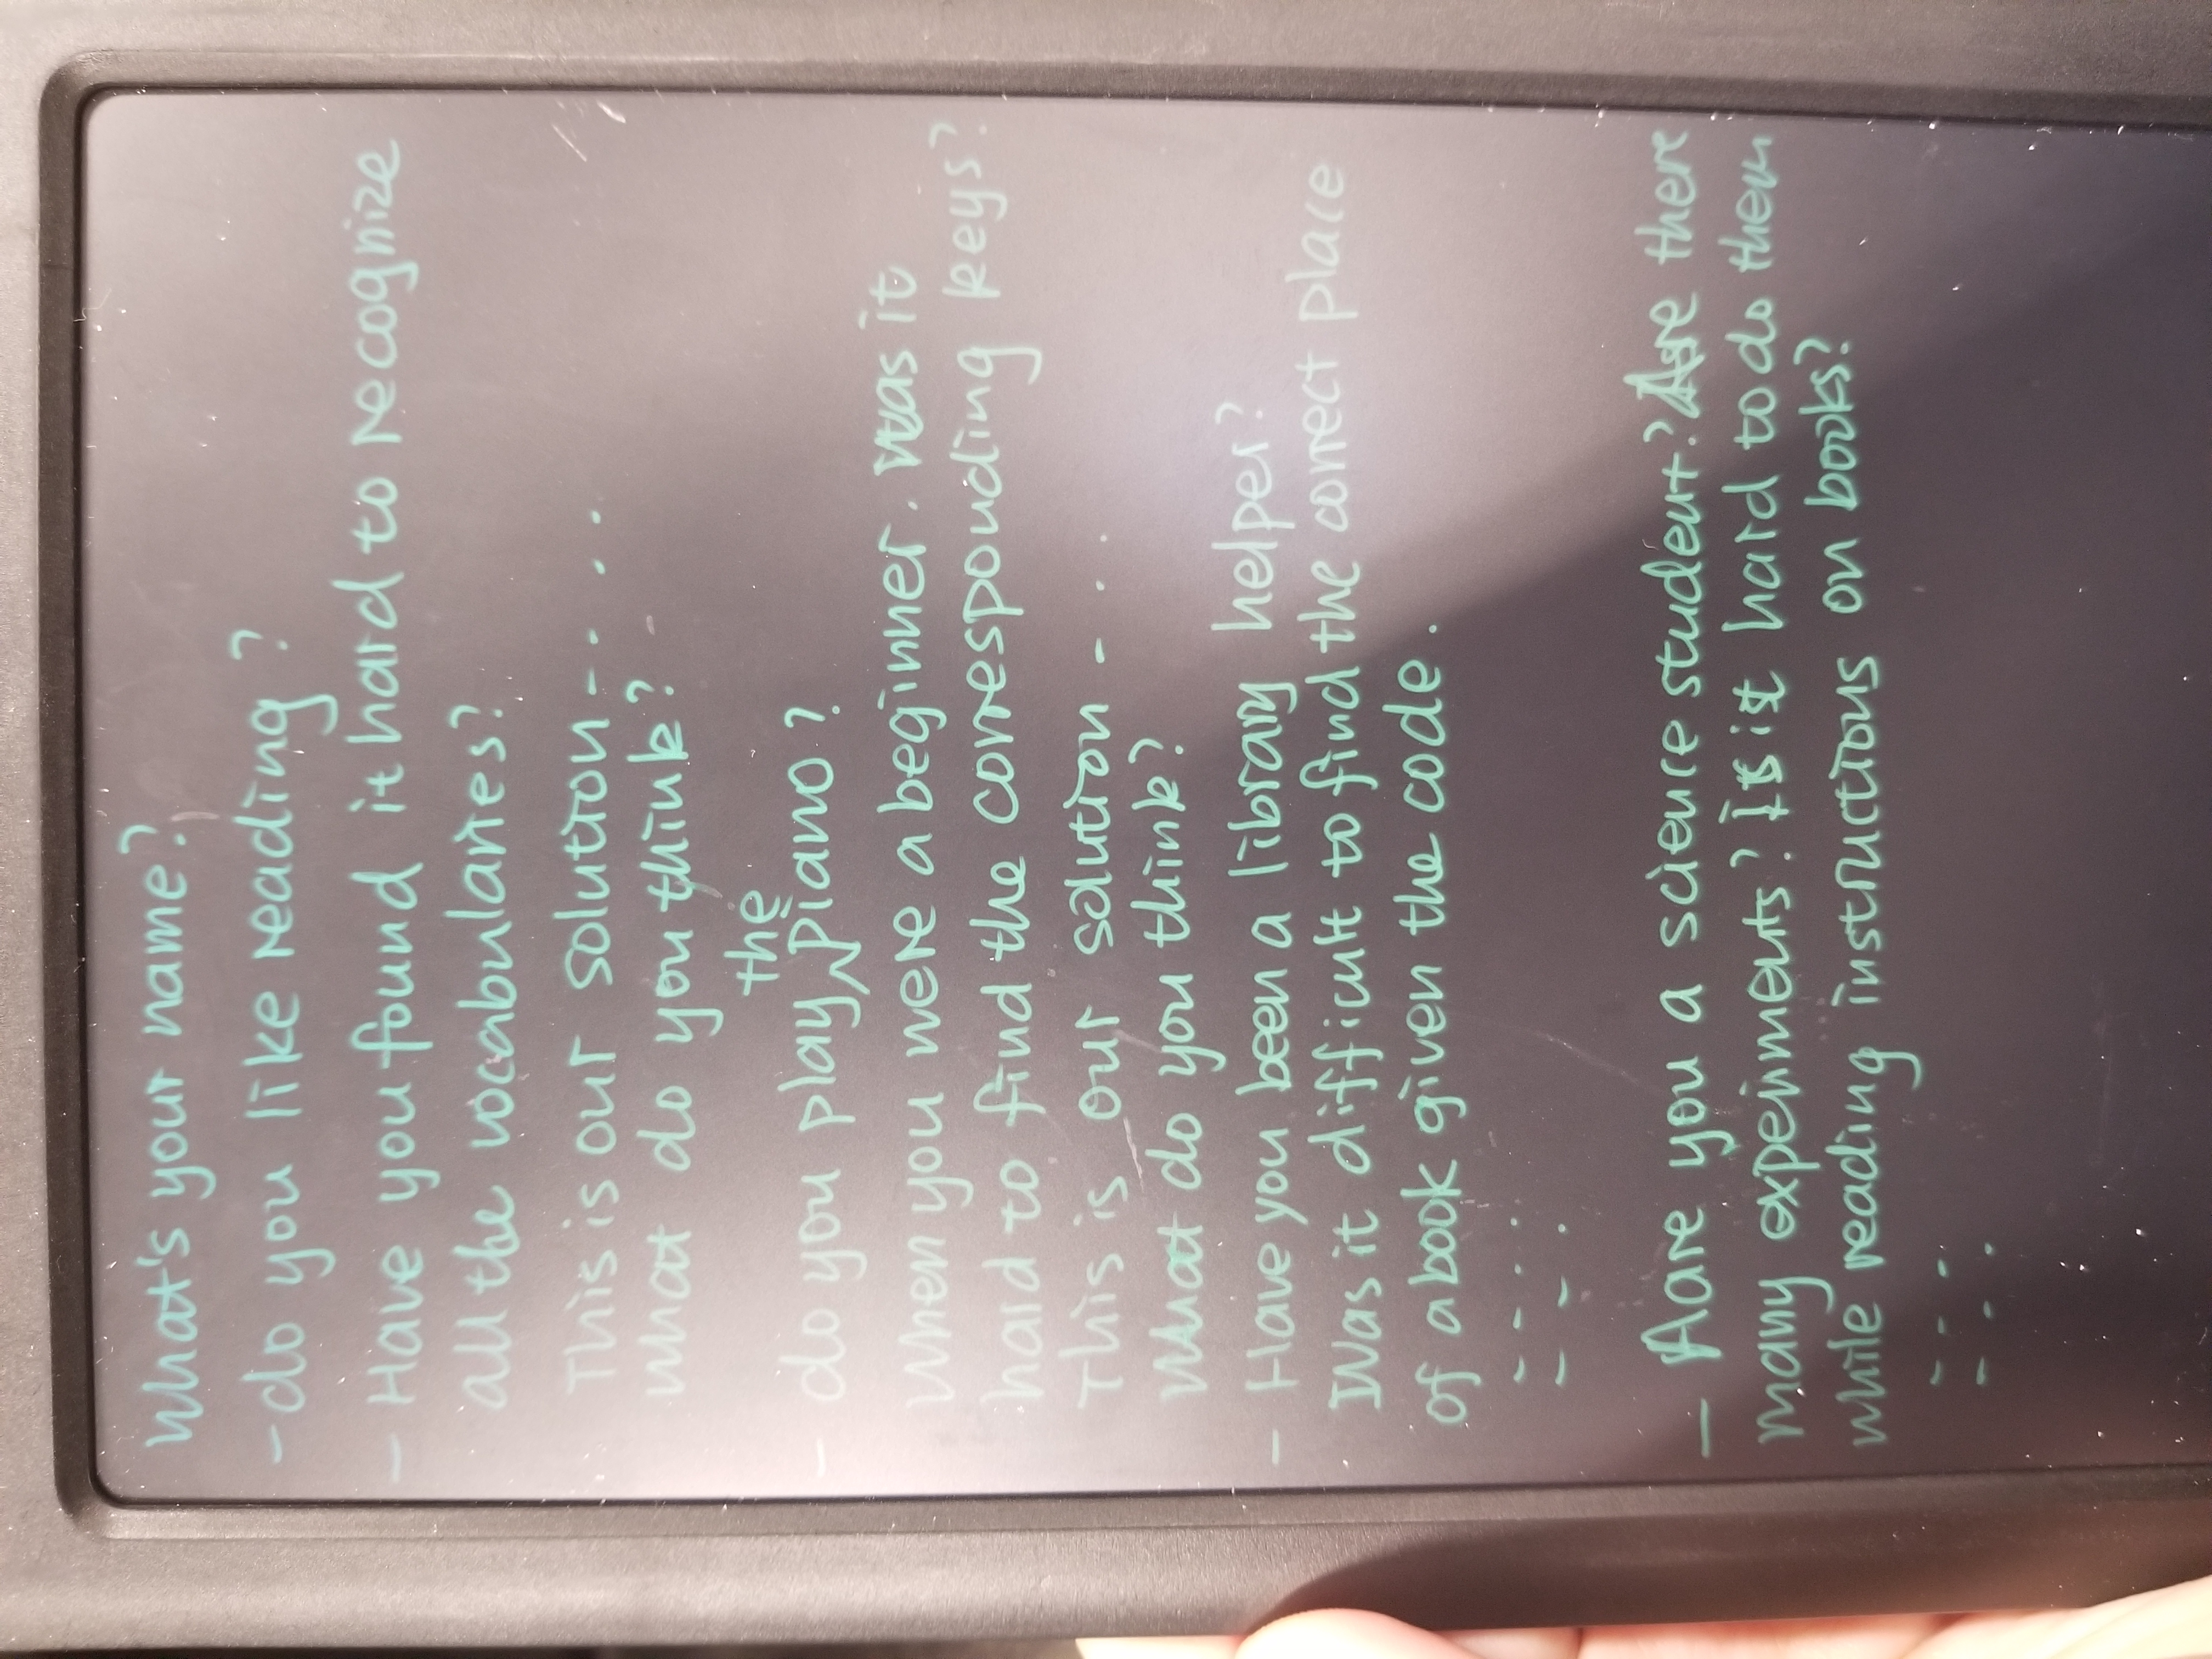 What's your name?
- do you like reading?
- Have you found it hard to recognize
all the vocabularies?
This is our solution - - . .
what do you think?
the
- do you play piano?
When you were a beginner. Was it
hard to find the corresponding keys?
This is our solution - . .
What do you think?
- Have you been a library helper?
Was it difficult to find the correct place
of a book given the code.
- - - .
- - .
- Aare you a science student? Are there
many experiments? Is it hard to do them
while reading instructions on books?
- - -
- - .